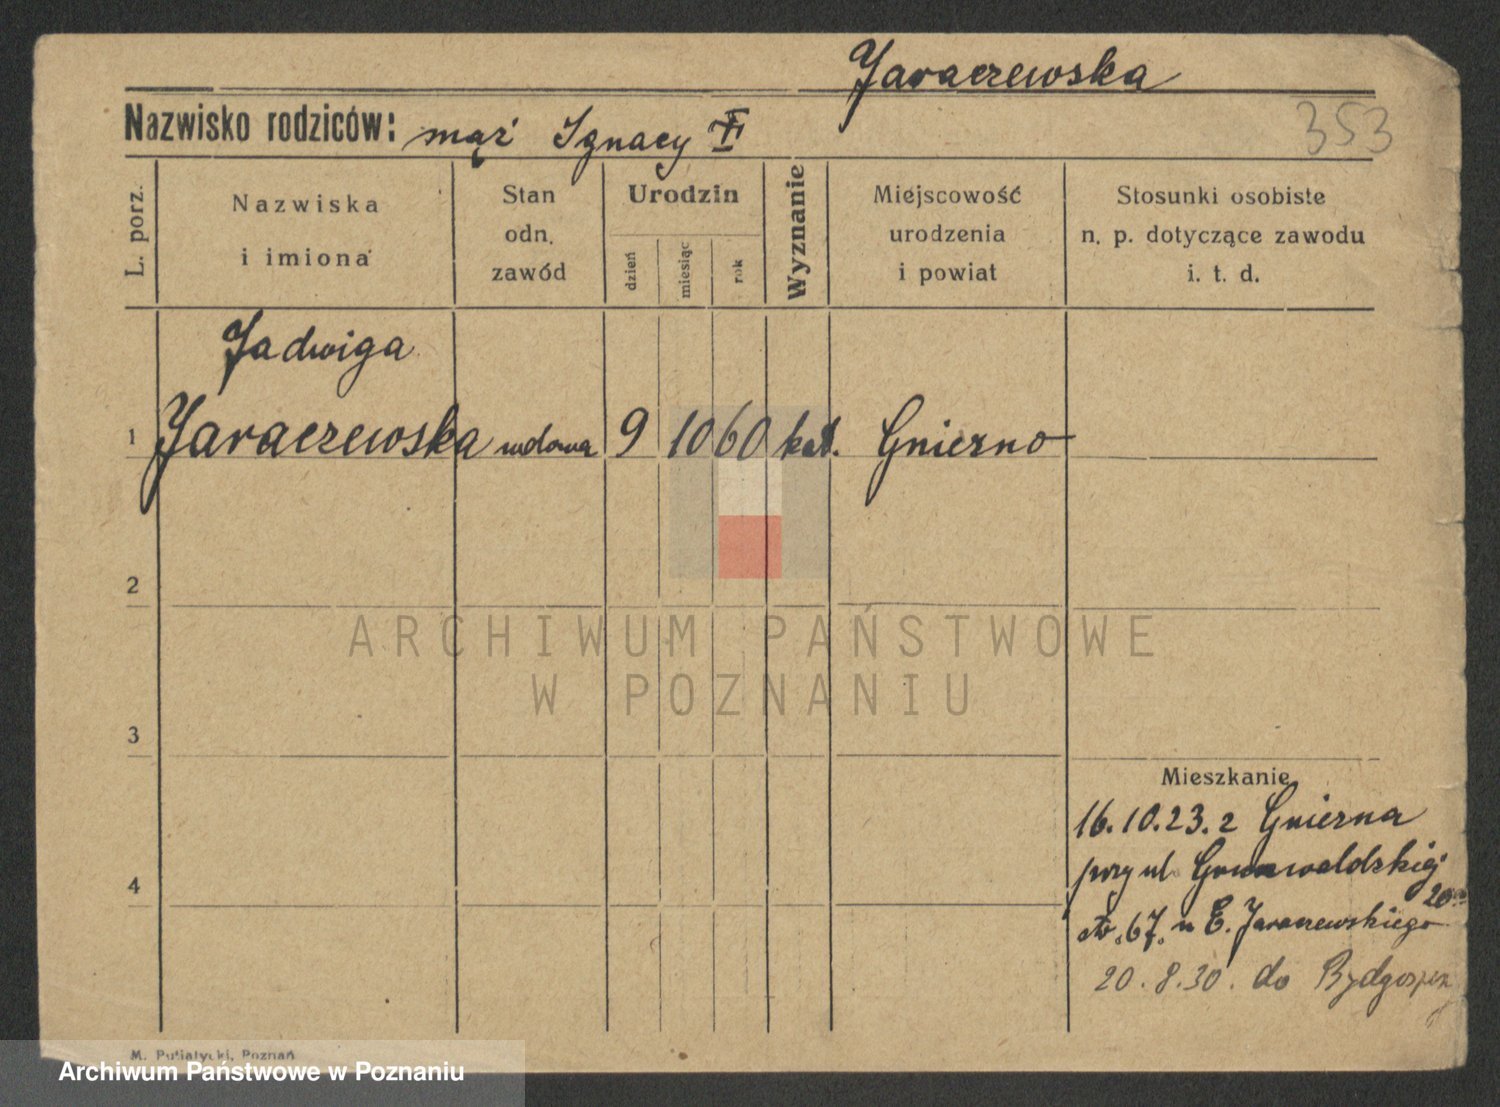 Jaraczewska
353
Nazwisko rodziców: mąż Ignacy
L. porz.
Nazwiska
i imiona
Stan
odn.
zawód
Urodzin
dzień
miesiąc
rok
Wyznanie
Miejscowość
urodzenia
i powiat
Stosunki osobiste
n. p. dotyczące zawodu
i. t. d.
Jadwiga
1 Jaraczewska wdowa 9 10 60 kat. Gniezno
2
ARCHIWUM PAŃSTWOWE
W POZNANIU
3
Mieszkanie
16.10.23. z Gniezna
przy ul. Grunwaldzkiej
67. u E. Jaraczewskiego
20.8.30. do
4
M. Putiatycki, Poznań
Archiwum Państwowe w Poznaniu